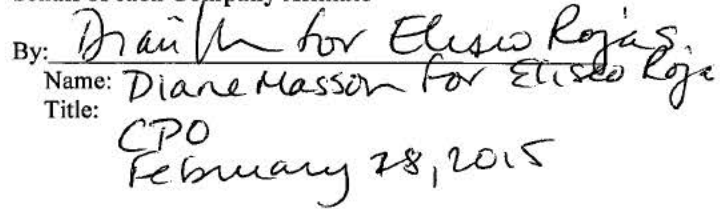 By: for Eliseo Rojas.
Name: Diane Masson for Eliseo Roja
Title:
CPO
February 28, 2015